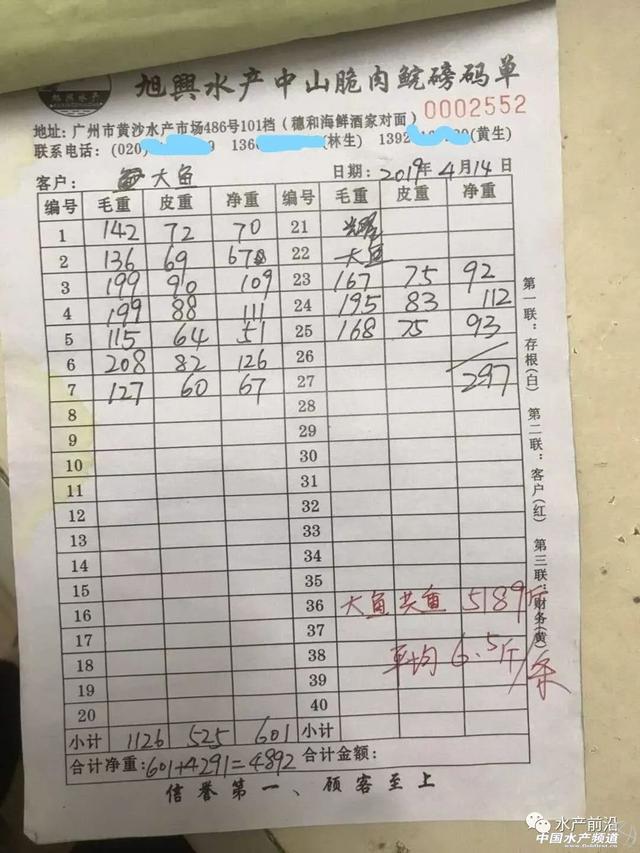 旭兴水产
旭興水产中山脆肉鲩磅码单
0002552
地址: 广州市黄沙水产市场486号101档 (穗和海鲜酒家对面)
联系电话: (020) 9 136 (林生) 1392 (黄生)
客户: 大鱼 日期: 2019年4月14日
编号 毛重 皮重 净重 编号 毛重 皮重 净重
1 142 72 70 21
2 136 69 67 22 大鱼
3 199 90 109 23 167 75 92
4 199 88 111 24 195 83 112
5 115 64 51 25 168 75 93
6 208 82 126 26
7 127 60 67 27 297
8 28
9 29
10 30
11 31
12 32
13 33
14 34
15 35
16 36 大鱼共鱼 5189斤
17 37
18 38 平均 6.5斤/条
19 39
20 40
小计 1126 525 601 小计
合计净重: 601+4291=4892 合计金额:
信誉第一、顾客至上
第一联: 存根(白) 第二联: 客户(红) 第三联: 财务(黄)
水产前沿
中国水产频道
www.fishfirst.cn